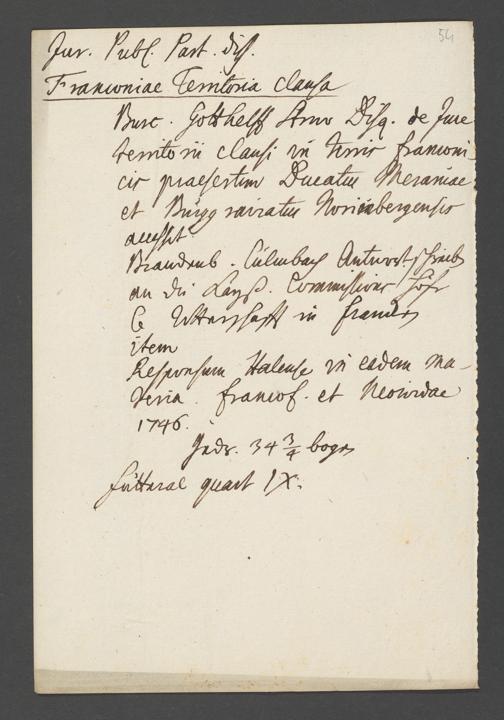 54
Jur. Publ. Part. diss.
Franconiae Territoria clausa
Burc. Gotthelff Struv Disq. de Jure
territorii clausi in terris franconi
cis praesertim Ducatus Meraniae
et Burggraviatus Noricabergensis
accessit
Brandenb. Culmbach Antwort-schreiben
an die Kayß. Commission
in Francken
item
Responsum Halense in eadem ma-
teria. francof. et Neowidae
1746.
34 3/4 bogen
futteral quart IX.